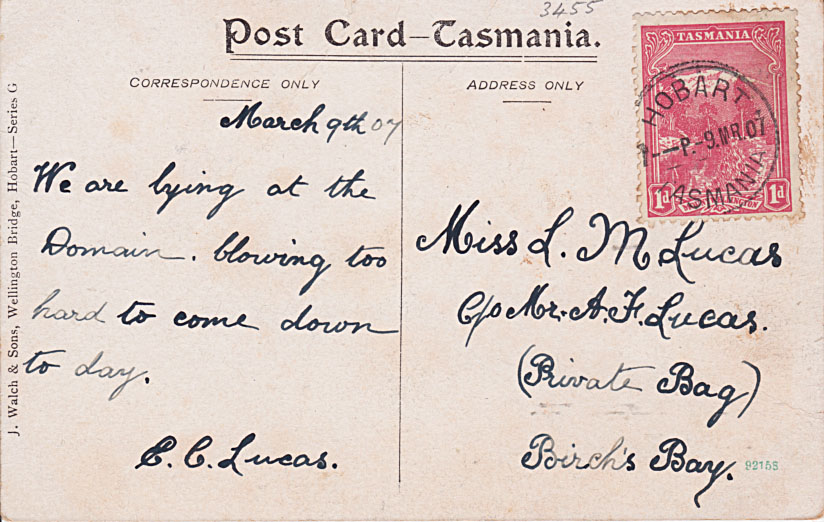 3455
Post Card–Tasmania.
CORRESPONDENCE ONLY
ADDRESS ONLY
TASMANIA
HOBART
-P.-9.MR.07
TASMANIA
1d
1d
March 9th 07
We are lying at the
Domain. blowing too
hard to come down
to day.
C. C. Lucas.
Miss L. M Lucas
C/o Mr. A. F. Lucas.
(Private Bag)
Birch's Bay.
92155
J. Walch & Sons, Wellington Bridge, Hobart—Series G